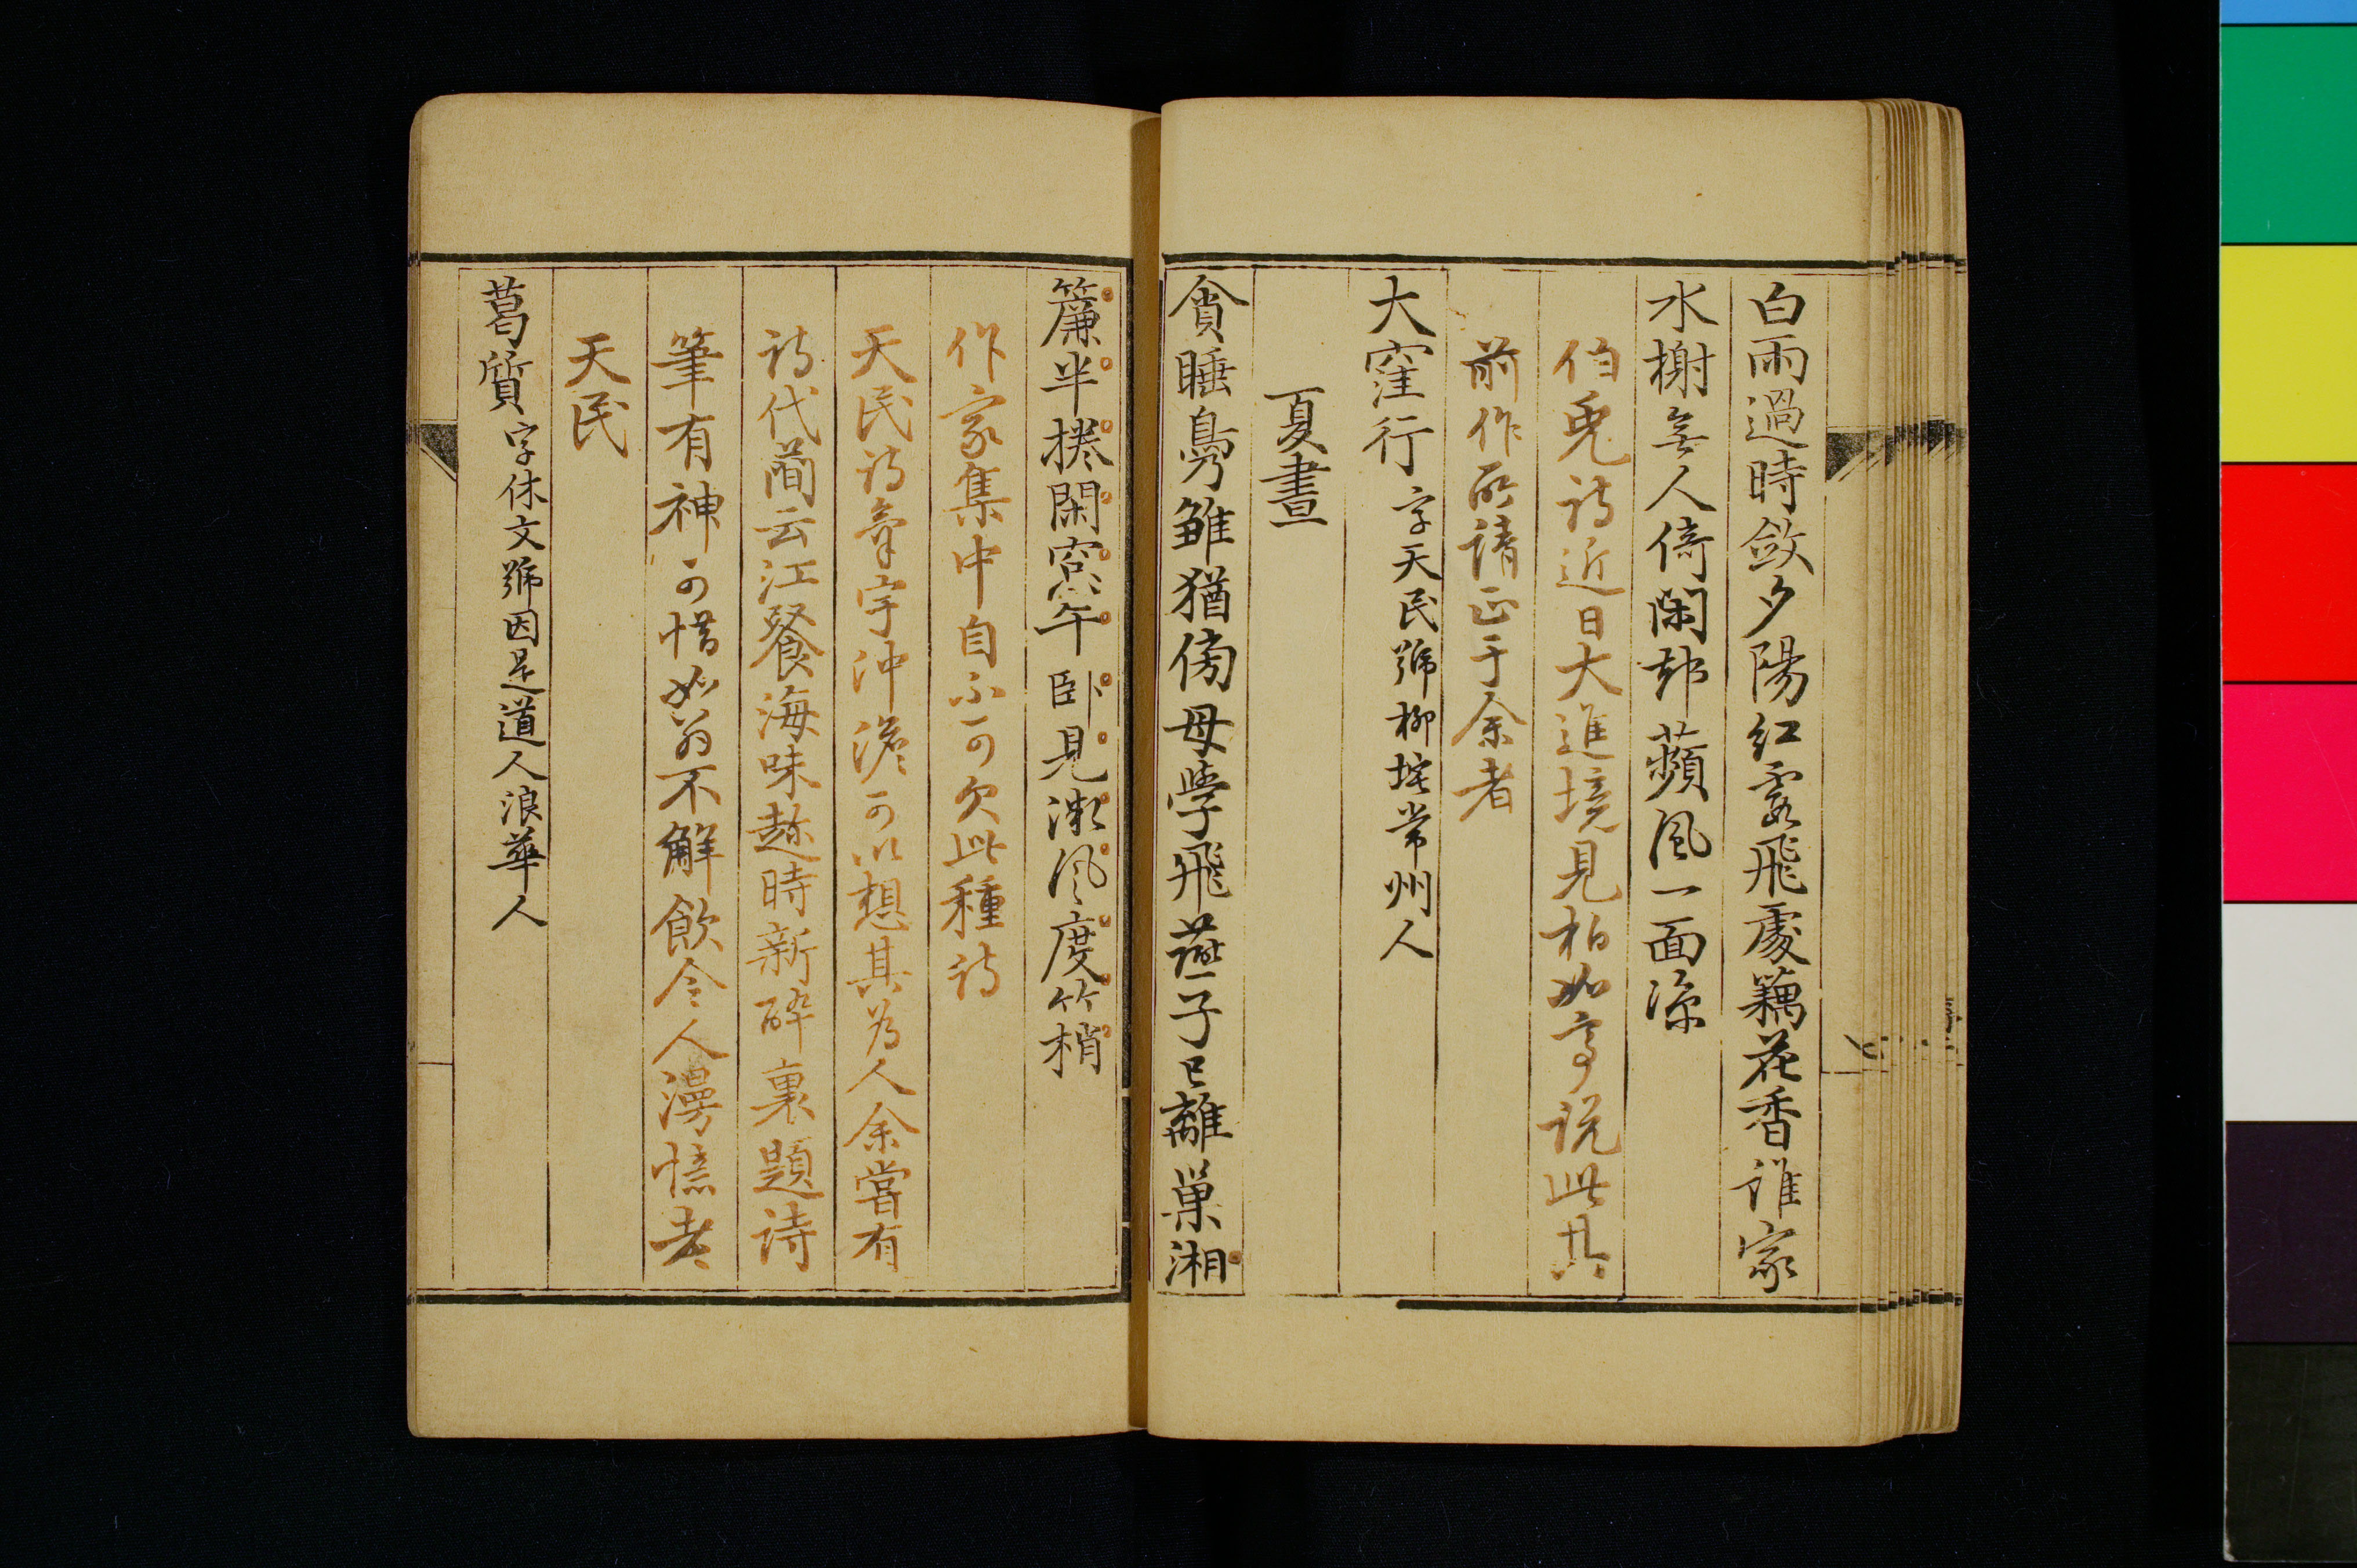 白雨過時斂夕陽紅雲飛處藕花香誰家
水榭無人倚閑却蘋風一面涼
伯兎詩近日大進境見柏如亭說此其
前作所請正于余者
大窪行字天民號柳垞常州人
夏晝
貪睡鳧雛猶傍母學飛燕子已離巢湘
簾半捲閑窓午卧見漱風度竹梢
作家集中自不可欠此種詩
天民詩氣宇沖澹可以想其為人余嘗有
詩代蕳云江餐海味趂時新醉裏題詩
筆有神可惜如翁不解飲令人漫憶老
天民
葛質字休文號因是道人浪華人
七